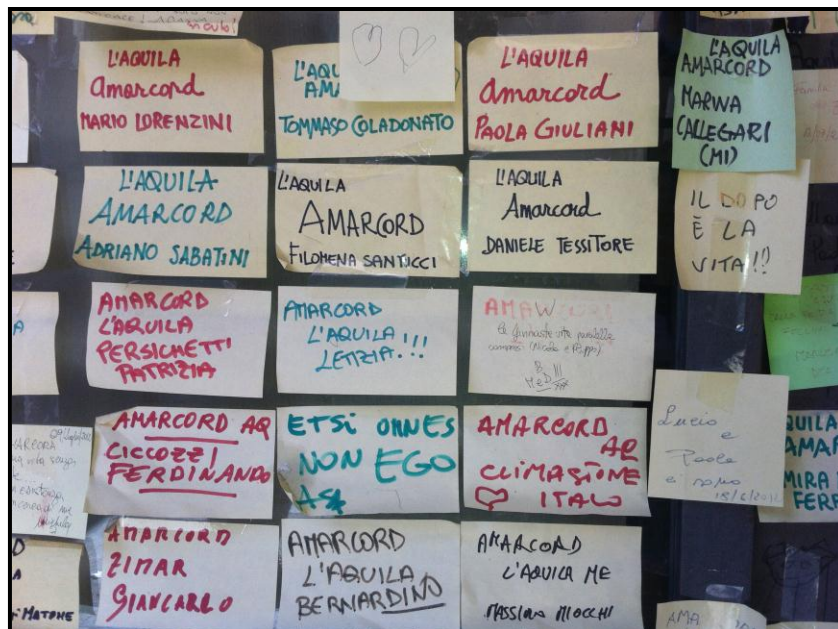 L'AQUILA
Amarcord
MARIO LORENZINI
L'AQU
AMA
TOMMASO COLADONATO
L'AQUILA
Amarcord
PAOLA GIULIANI
L'AQUILA
AMARCORD
MARINA
CALLEGARI
(MI)
L'AQUILA
AMARCORD
ADRIANO SABATINI
L'AQUILA
AMARCORD
FILOMENA SANTICCI
L'AQUILA
Amarcord
DANIELE TESSITORE
IL DOPO
È LA
VITA!!
AMARCORD
L'AQUILA
PERSICHETTI
PATRIZIA
AMARCORD
L'AQUILA
LETIZIA!!!
AMARCORD AQ
CICCOZZI
FERDINANDO
ETSI OMNES
NON EGO
AMARCORD
AQ
CLIMASTONE
ITALO
Lucio
e
Paola
ci sono
QUILA
AMAR
MIRA
FER
AMARCORD
ZIMAR
GIANCARLO
AMARCORD
L'AQUILA
BERNARDINO
AMARCORD
L'AQUILA ME
MASSIMO MIOCCHI
MATONE
AMA